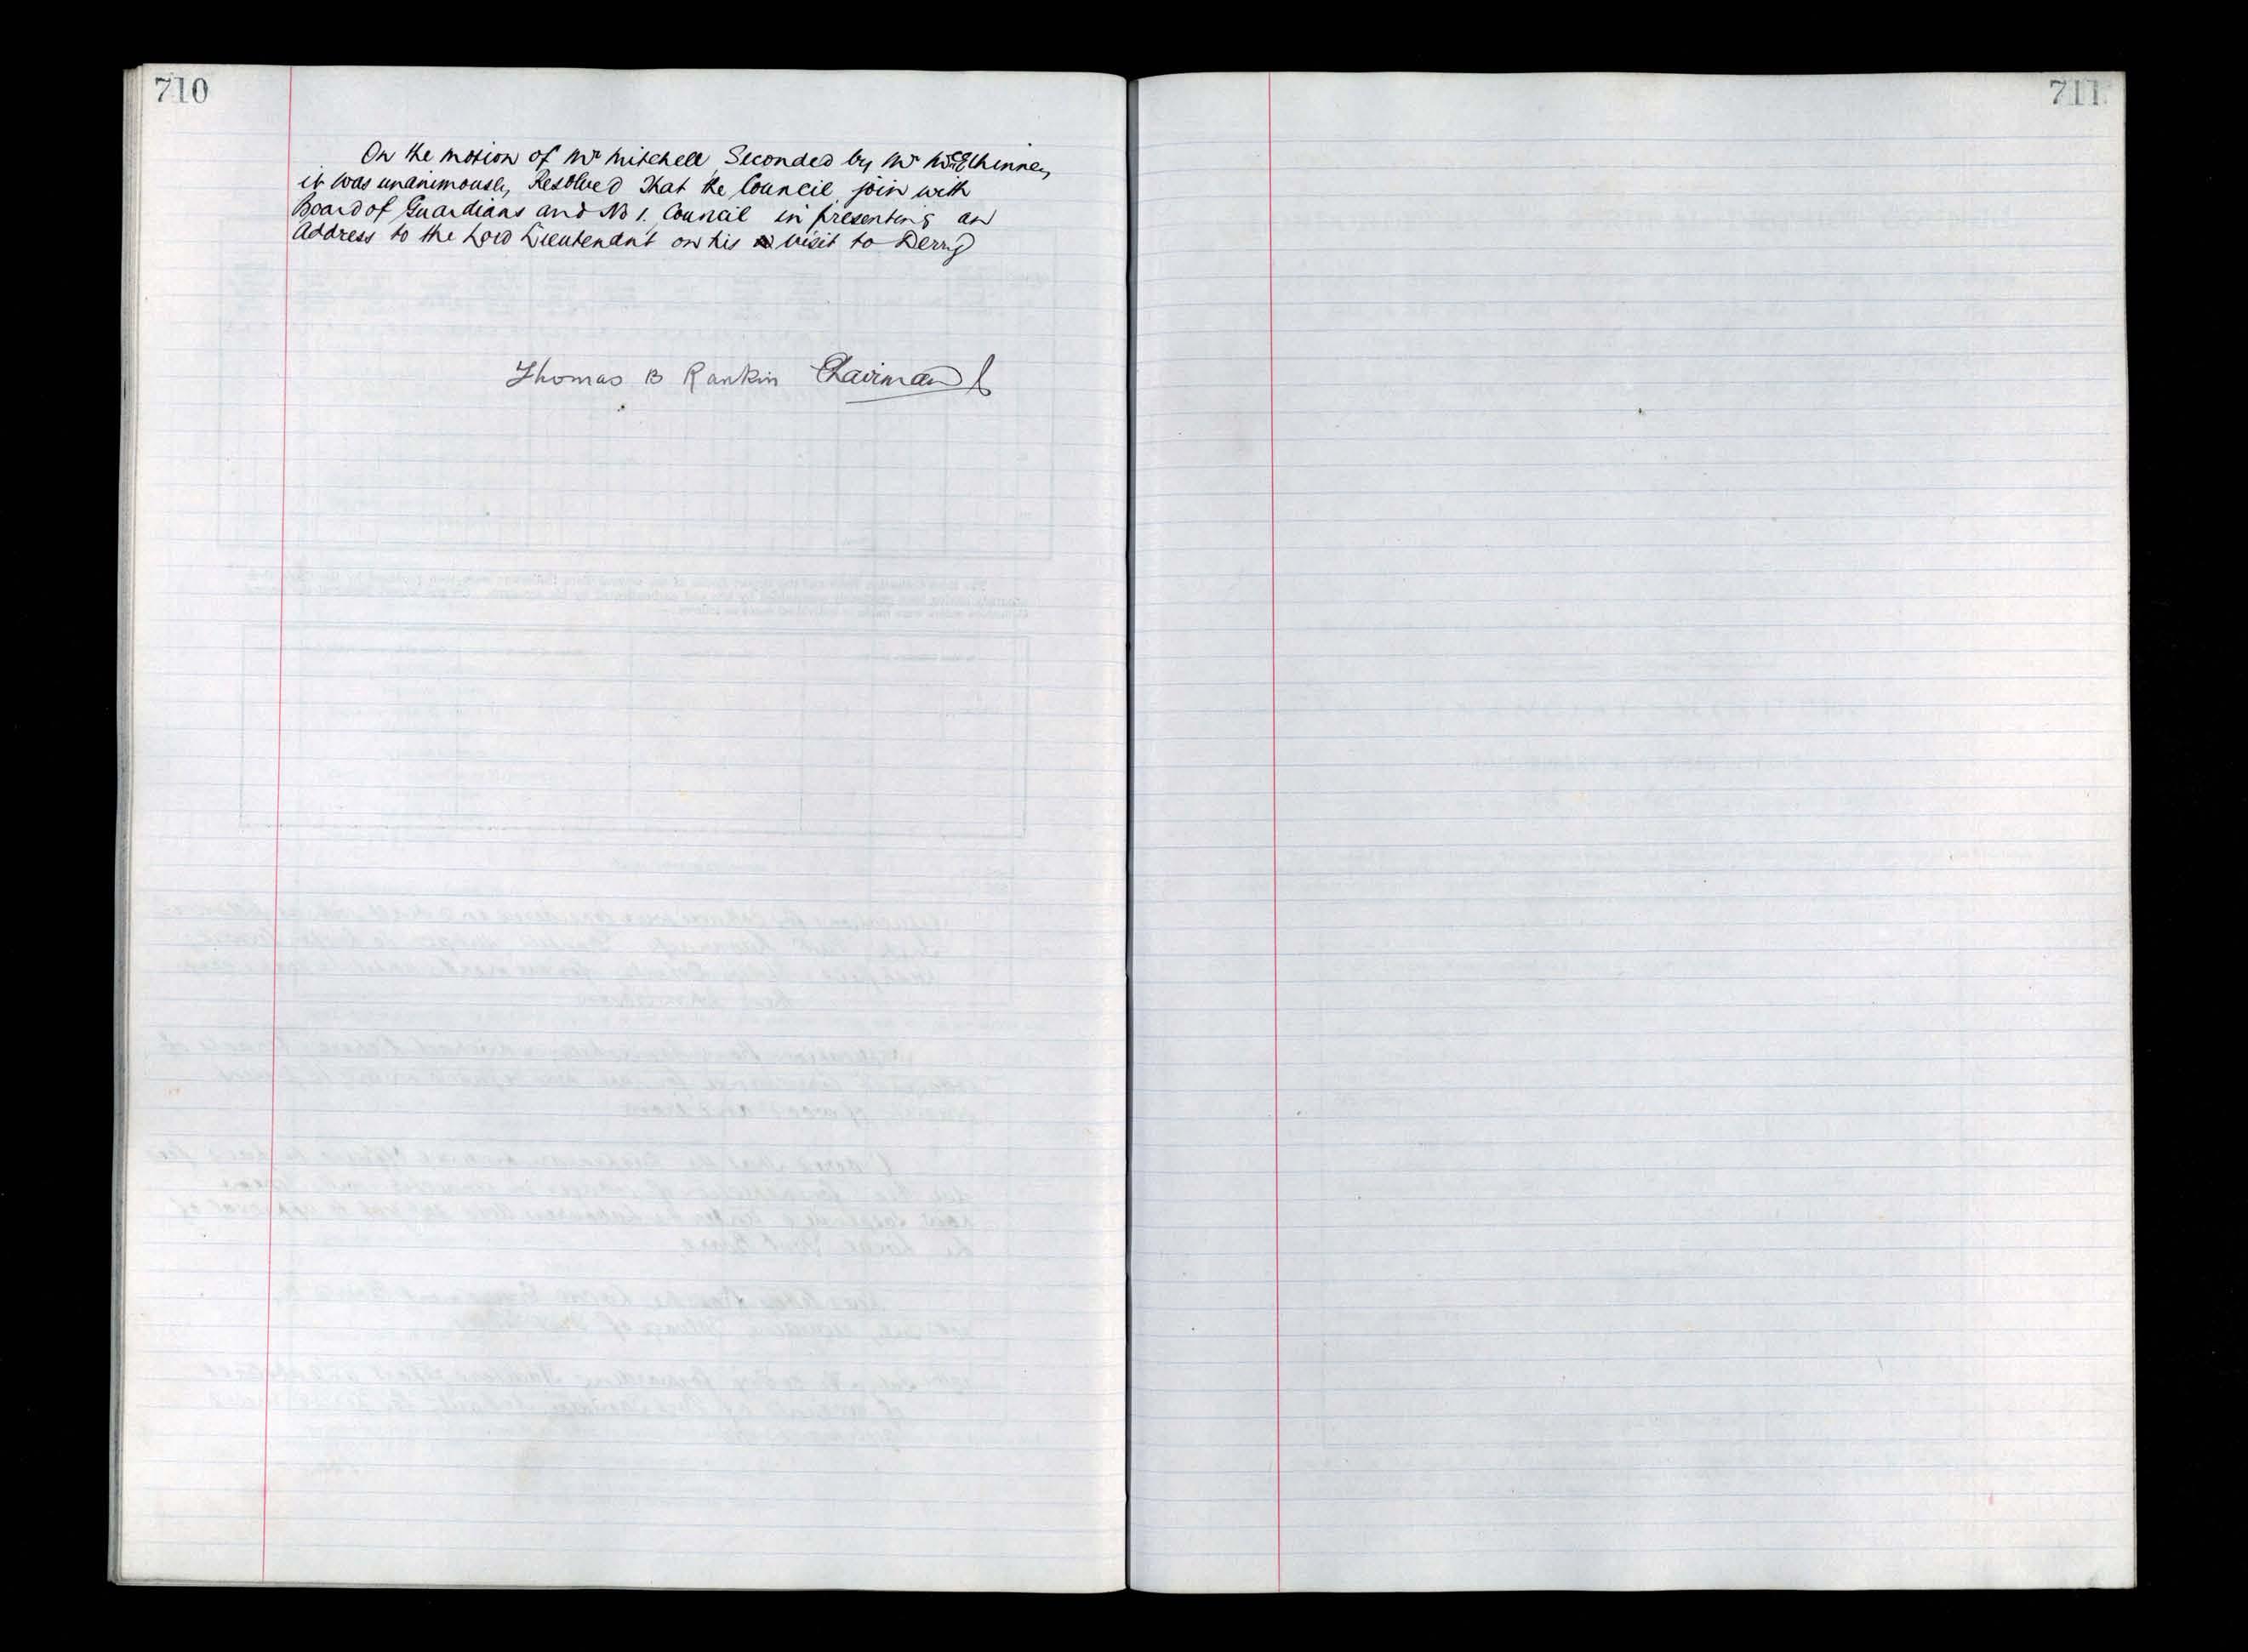 710
On the motion of Mr Mitchell, Seconded by Mr McElhinney
it was unanimously Resolved That the Council join with
Board of Guardians and No 1. Council in presenting an
Address to the Lord Lieutenant on his visit to Derry
Thomas B Rankin Chairman
711